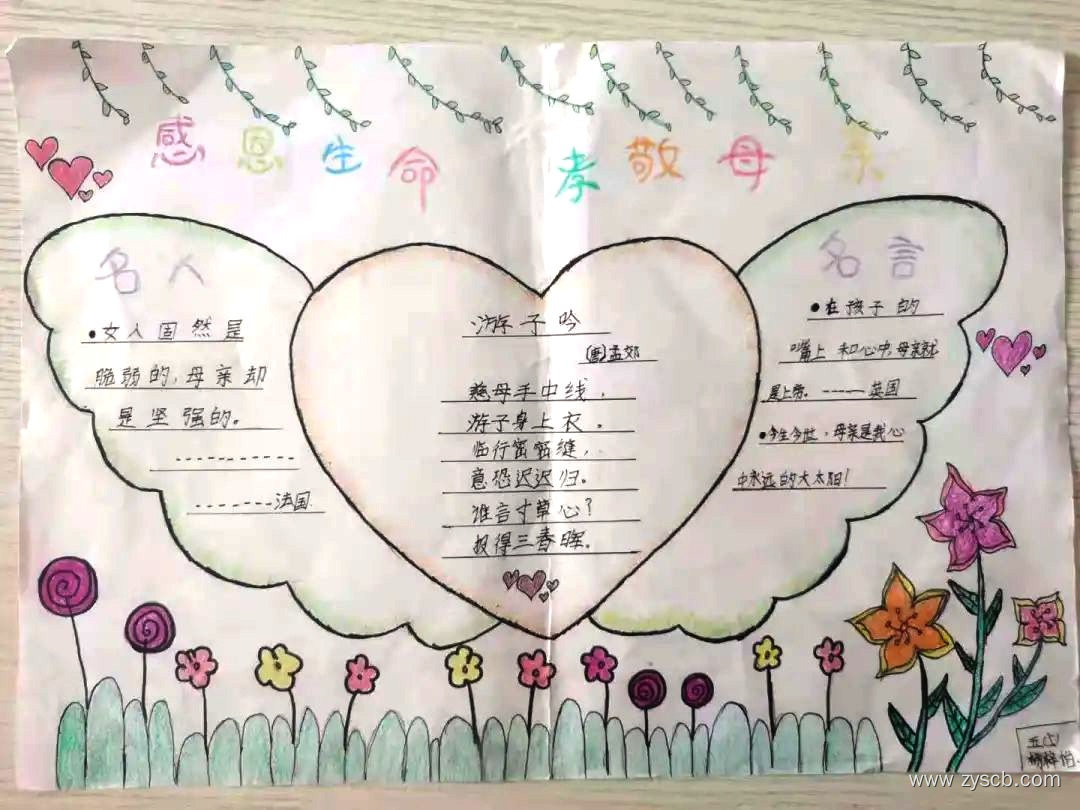 感恩生命 孝敬母亲
名人
•女人固然是
脆弱的,母亲却
是坚强的。
-------法国
游子吟
(唐)孟郊
慈母手中线,
游子身上衣。
临行密密缝,
意恐迟迟归。
谁言寸草心?
报得三春晖。
名言
•在孩子的
嘴上和心中,母亲就
是上帝。-----英国
•今生今世,母亲是我心
中永远的大太阳!
www.zyscb.com